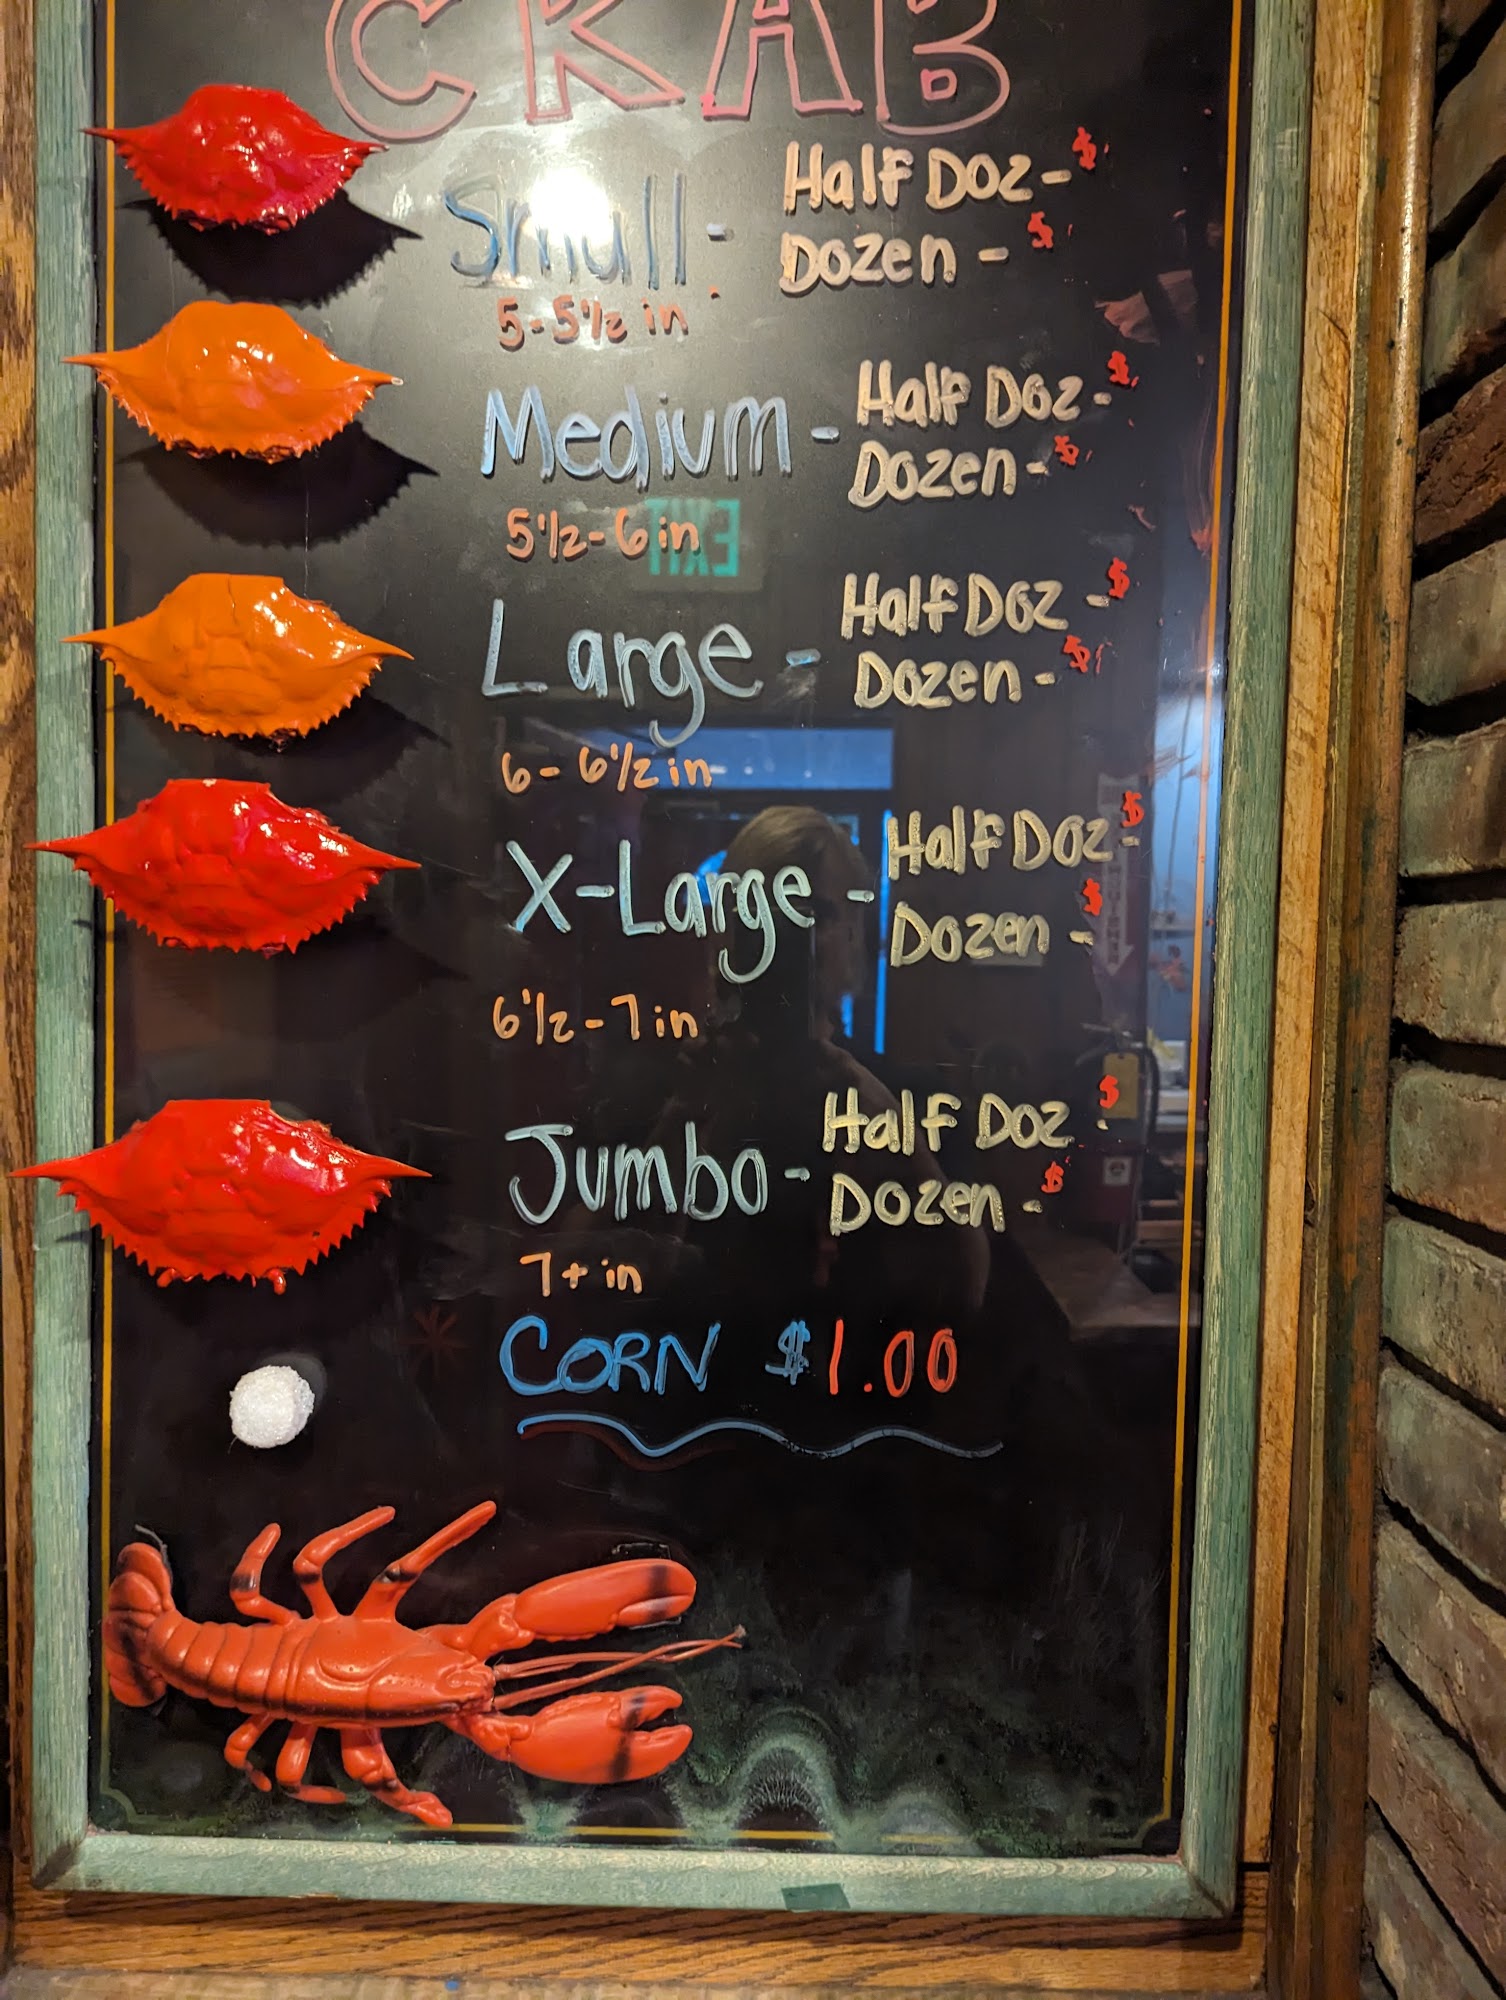 CRAB
Small - Half Doz - $
Dozen - $
5 - 5 1/2 in
Medium - Half Doz - $
Dozen - $
5 1/2 - 6 in
EXIT
Large - Half Doz - $
Dozen - $
6 - 6 1/2 in
X-Large - Half Doz - $
Dozen - $
6 1/2 - 7 in
Jumbo - Half Doz $
Dozen - $
7+ in
CORN $1.00